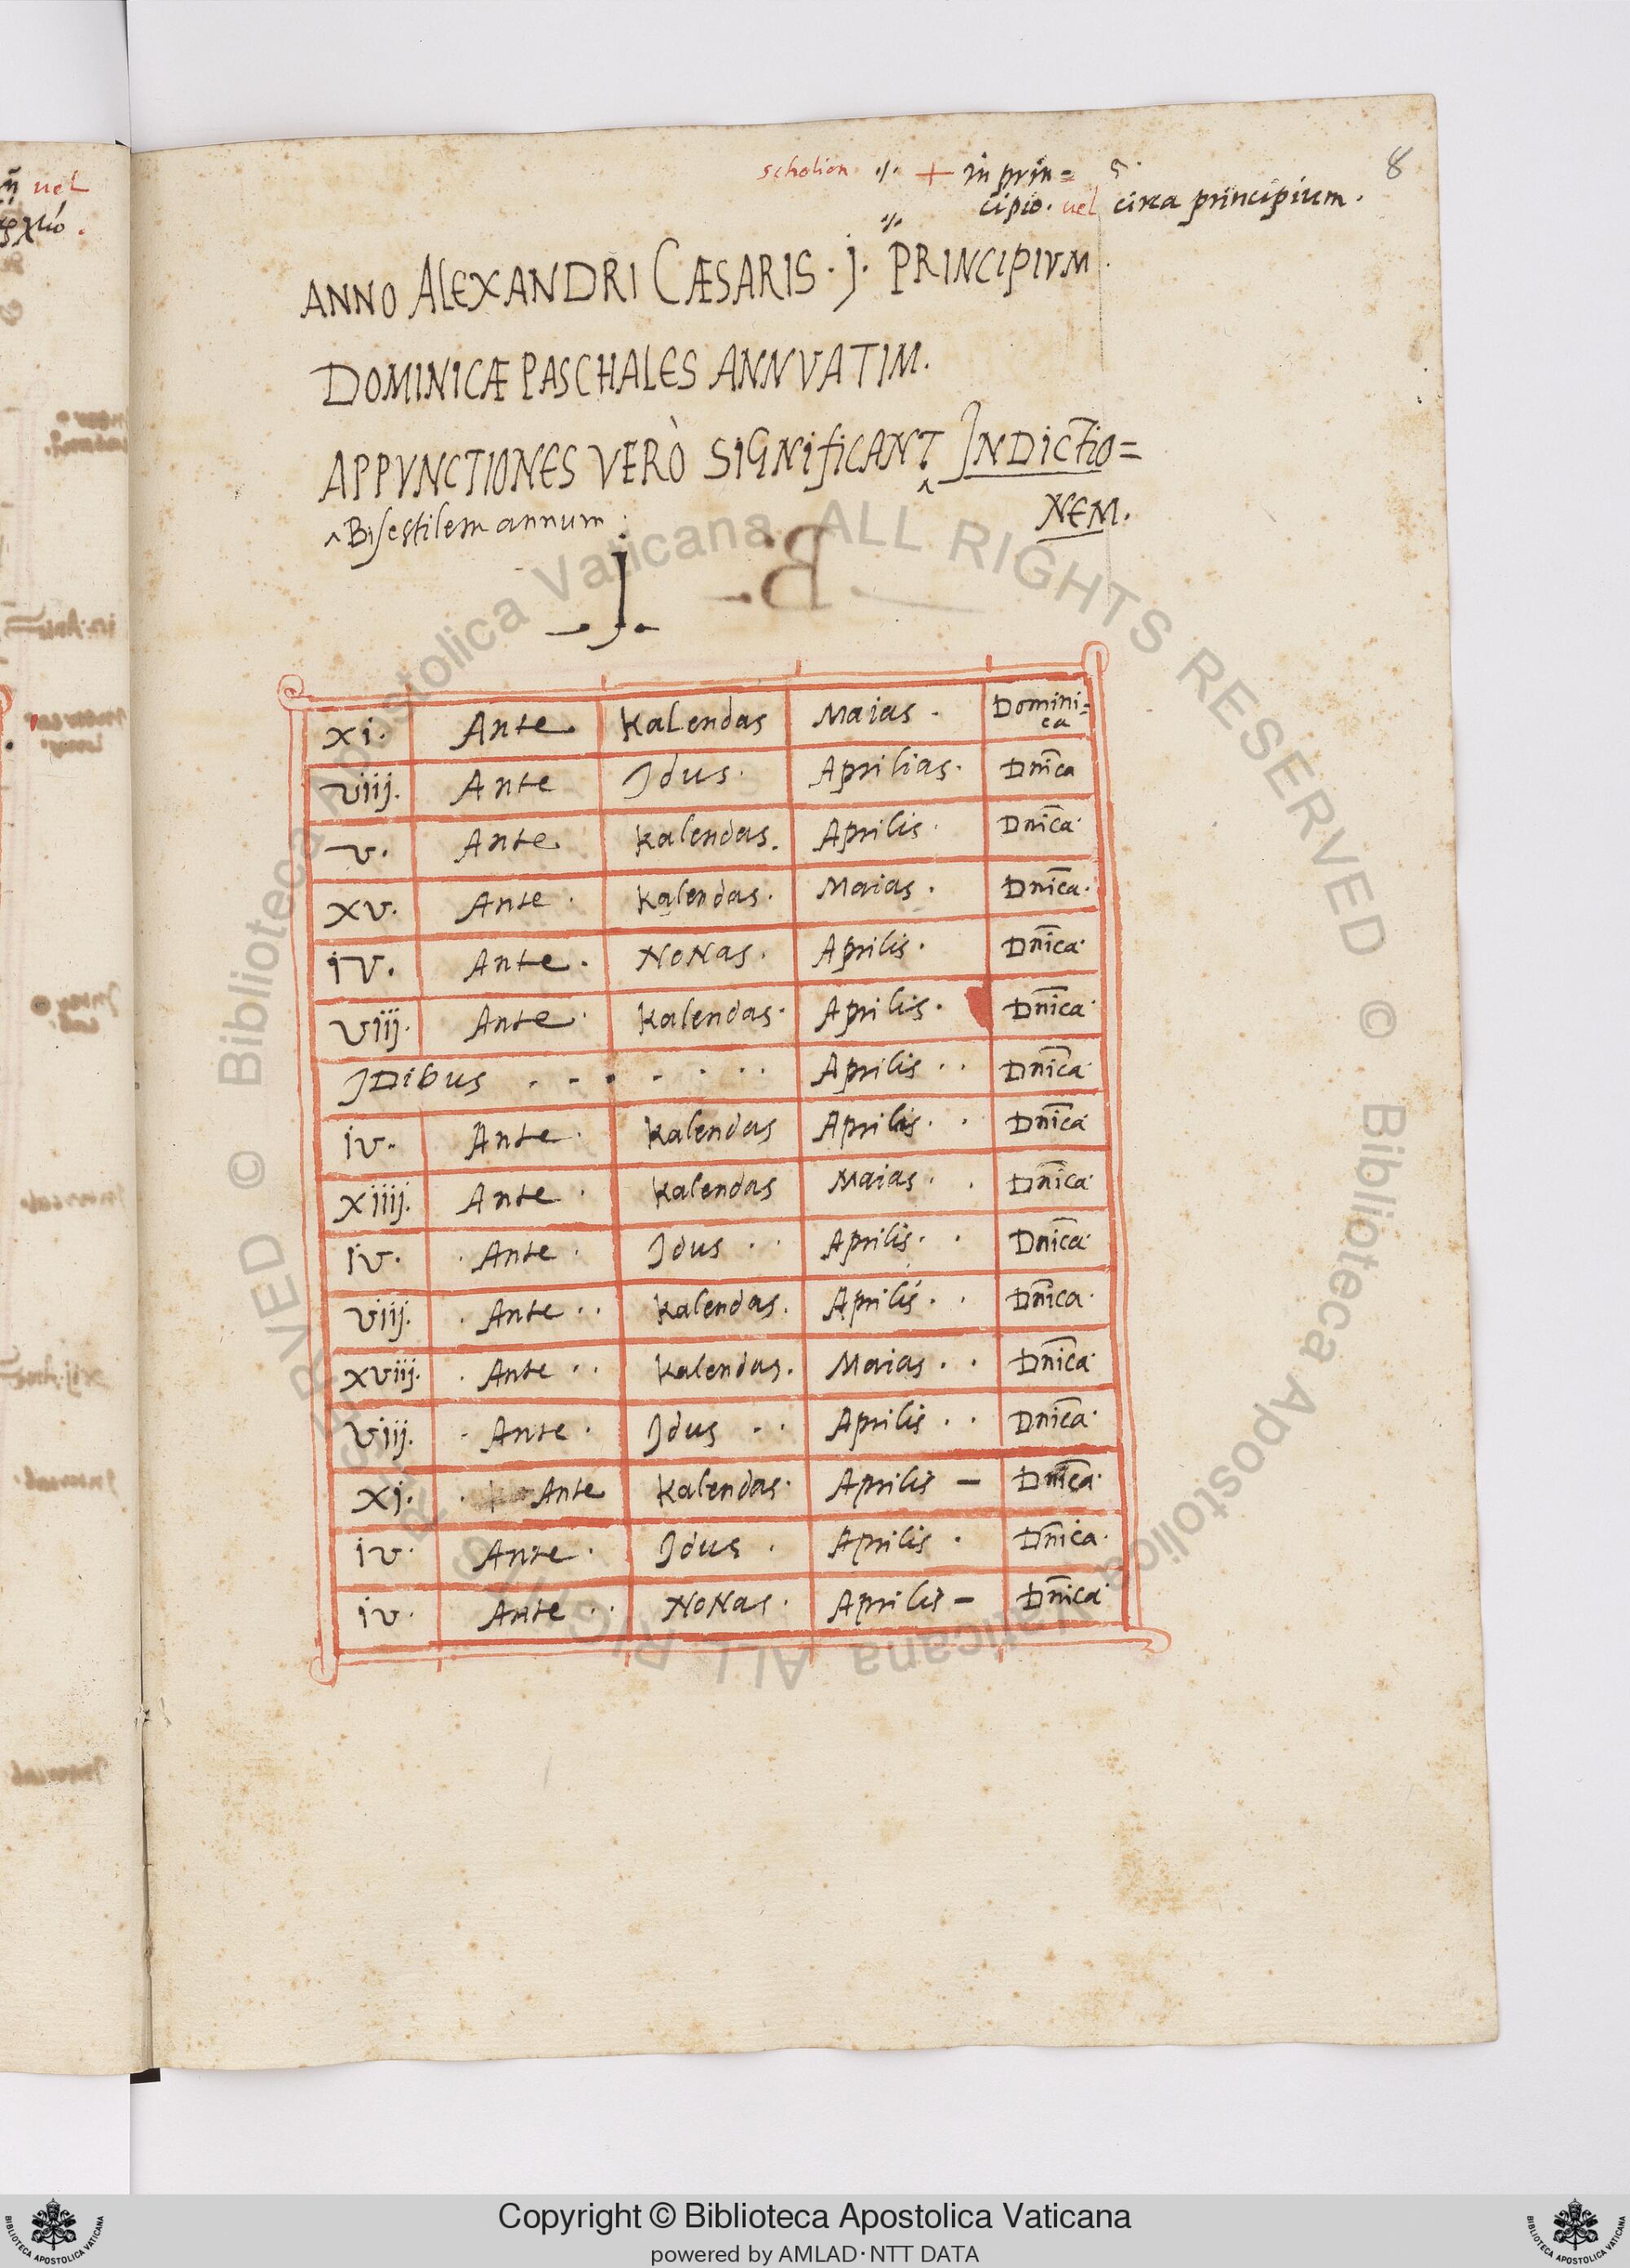 8
scholion ·/· + in prin=
cipio. uel circa principium.
ANNO ALEXANDRI CÆSARIS · j · PRINCIPIVM.
DOMINICÆ PASCHALES ANNVATIM.
APPVNCTIONES VERÒ SIGNIFICANT ‸ INDICTIO=
NEM.
‸ Bisestilem annum.
I.
xi. Ante Kalendas Maias. Domini=
ca
viij. Ante Idus. Aprilias. Dnica
v. Ante Kalendas. Aprilis. Dnica
xv. Ante Kalendas. Maias. Dnica.
iv. Ante. Nonas. Aprilis. Dnica
viij. Ante Kalendas. Aprilis. Dnica
Idibus . . . . . . . Aprilis . . Dnica
iv. Ante. Kalendas Aprilis . . Dnica
xiiij. Ante. Kalendas Maias . . Dnica
iv. Ante. Idus . . Aprilis . . Dnica
viij. Ante . . Kalendas. Aprilis . . Dnica.
xviij. Ante . . Kalendas. Maias . . Dnica
viij. Ante. Idus . . Aprilis . . Dnica
xi. Ante Kalendas. Aprilis – Dnica
iv. Ante. Idus . Aprilis . Dnica.
iv. Ante . . Nonas. Aprilis – Dnica
uel
© Biblioteca Apostolica Vaticana ALL RIGHTS RESERVED © Biblioteca Apostolica Vaticana ALL RIGHTS RESERVED
Copyright © Biblioteca Apostolica Vaticana
powered by AMLAD·NTT DATA
BIBLIOTECA APOSTOLICA VATICANA
BIBLIOTECA APOSTOLICA VATICANA